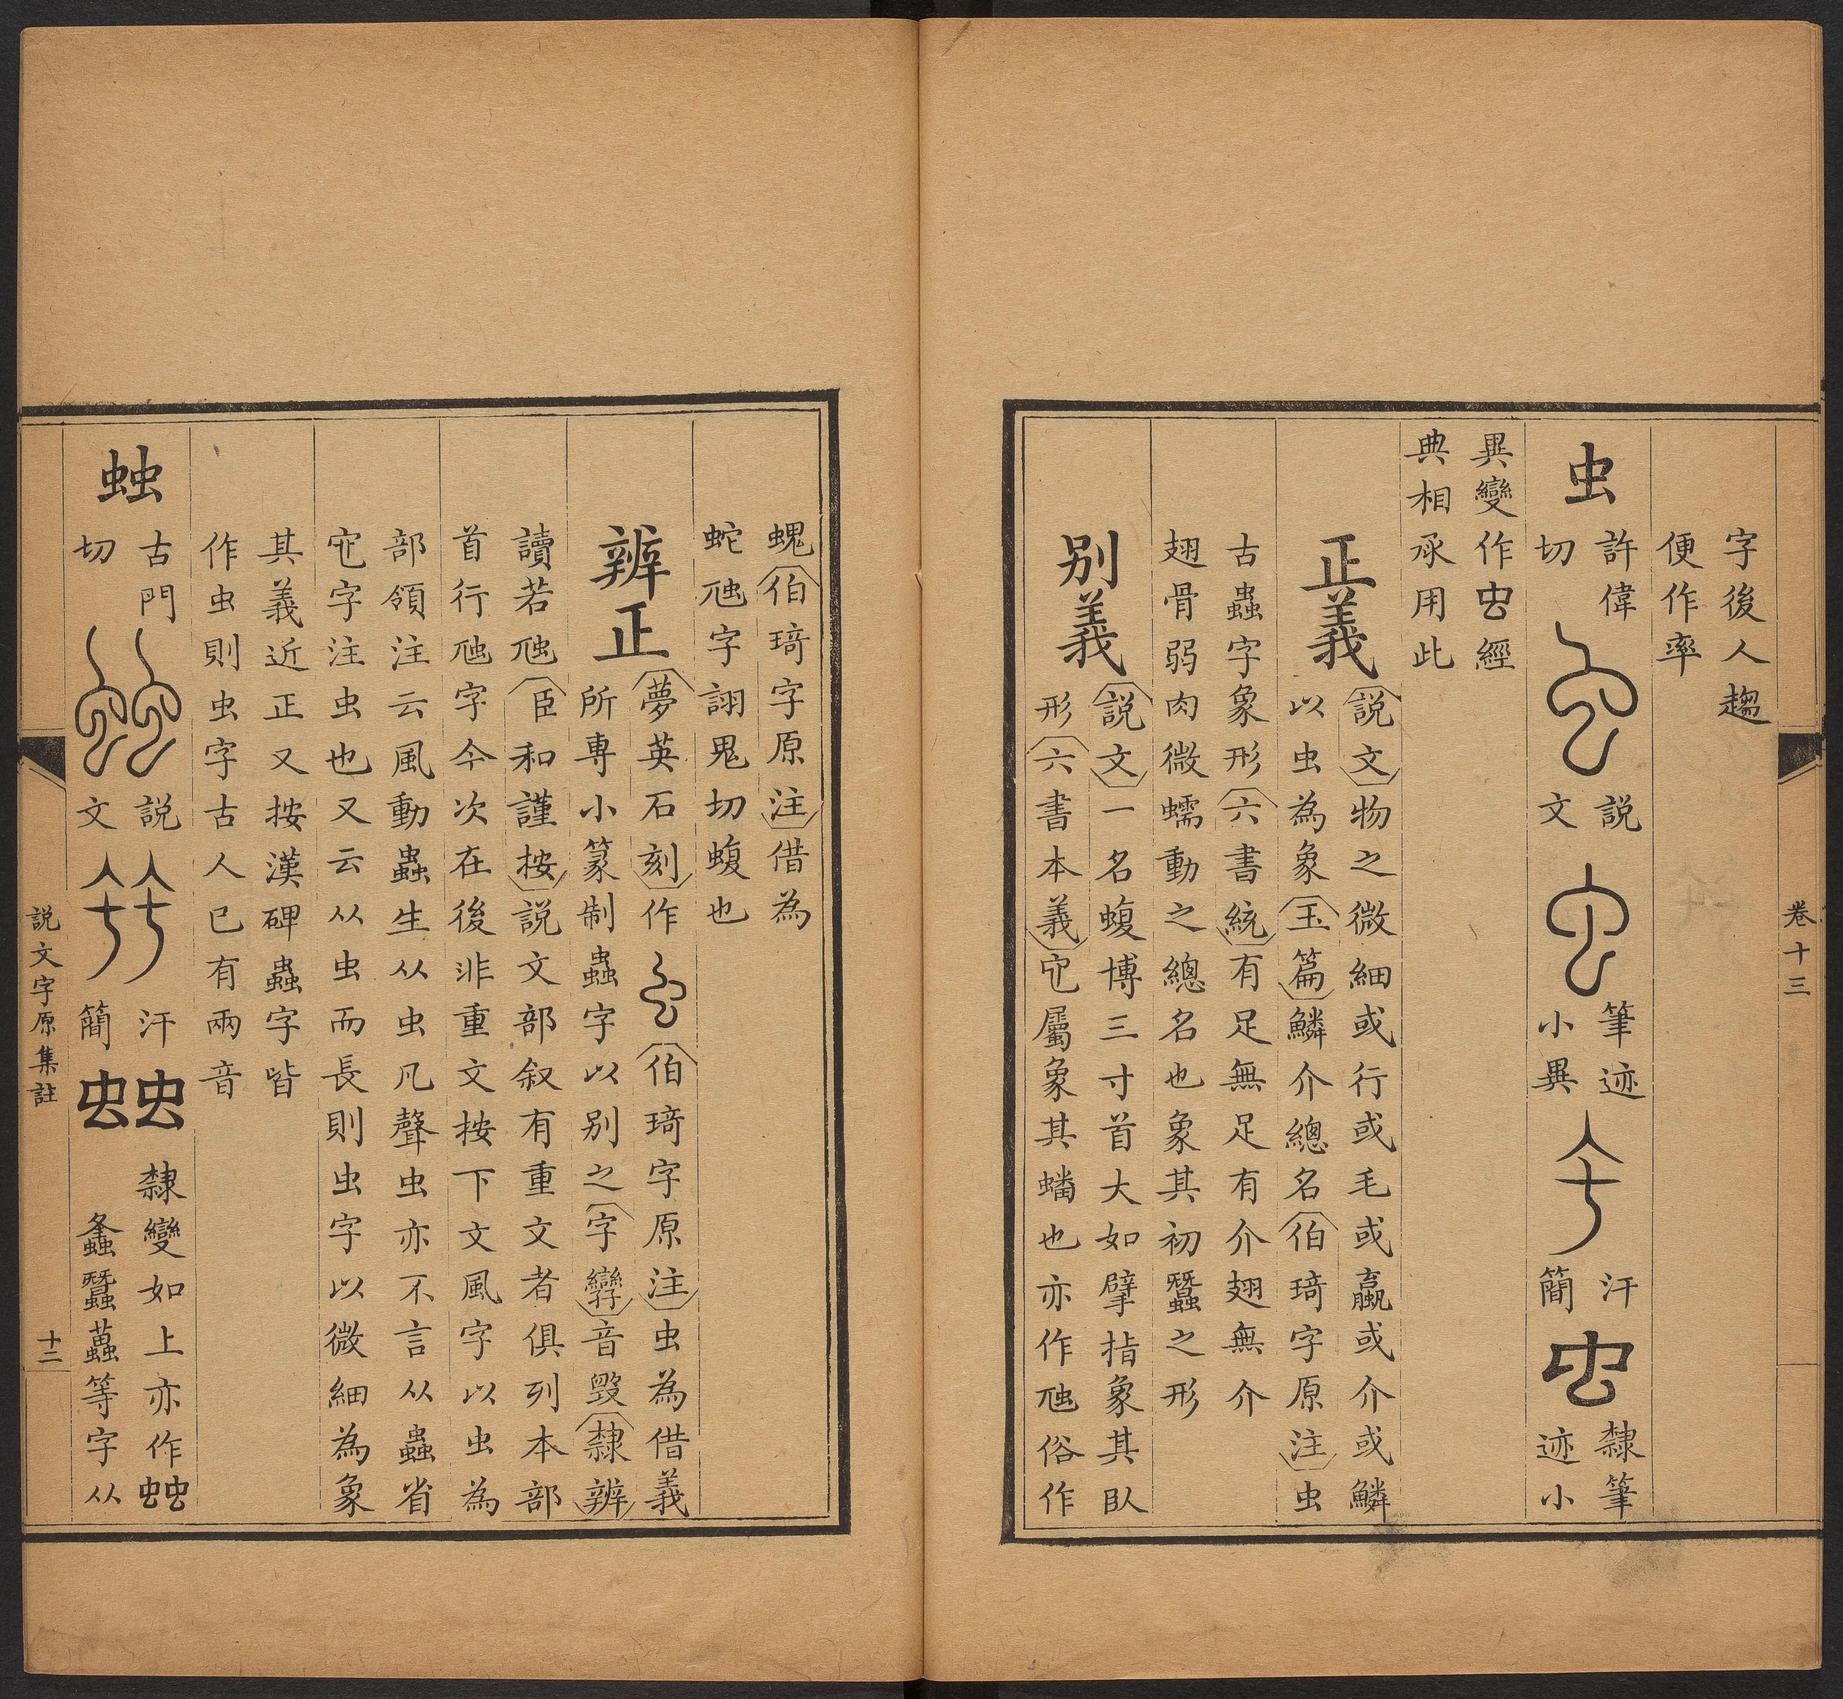 卷十三
字後人趨
便作率
虫
許偉
切
説
文
筆迹
小異
汗
簡
隸筆
迹小
異變作虫經
典相承用此
正義
説文物之微細或行或毛或蠃或介或鱗
以虫為象玉篇鱗介總名伯琦字原注虫
古蟲字象形六書統有足無足有介翅無介
翅骨弱肉微蠕動之總名也象其初蠶之形
别義
説文一名蝮博三寸首大如擘指象其臥
形六書本義它屬象其蟠也亦作虺俗作
螝伯琦字原注借為
蛇虺字詡鬼切蝮也
辨正
夢英石刻作伯琦字原注虫為借義
所専小篆制蟲字以别之字孿音毀隸辨
讀若虺臣和謹按説文部叙有重文者俱列本部
首行虺字今次在後非重文按下文風字以虫為
部領注云風動蟲生从虫凡聲虫亦不言从蟲省
它字注虫也又云从虫而長則虫字以微細為象
其義近正又按漢碑蟲字皆
作虫則虫字古人已有兩音
䖵
古門
切
説
文
汗
簡
䖵
隸變如上亦作䖵
螽蠶蠤等字从
説文字原集註
十二